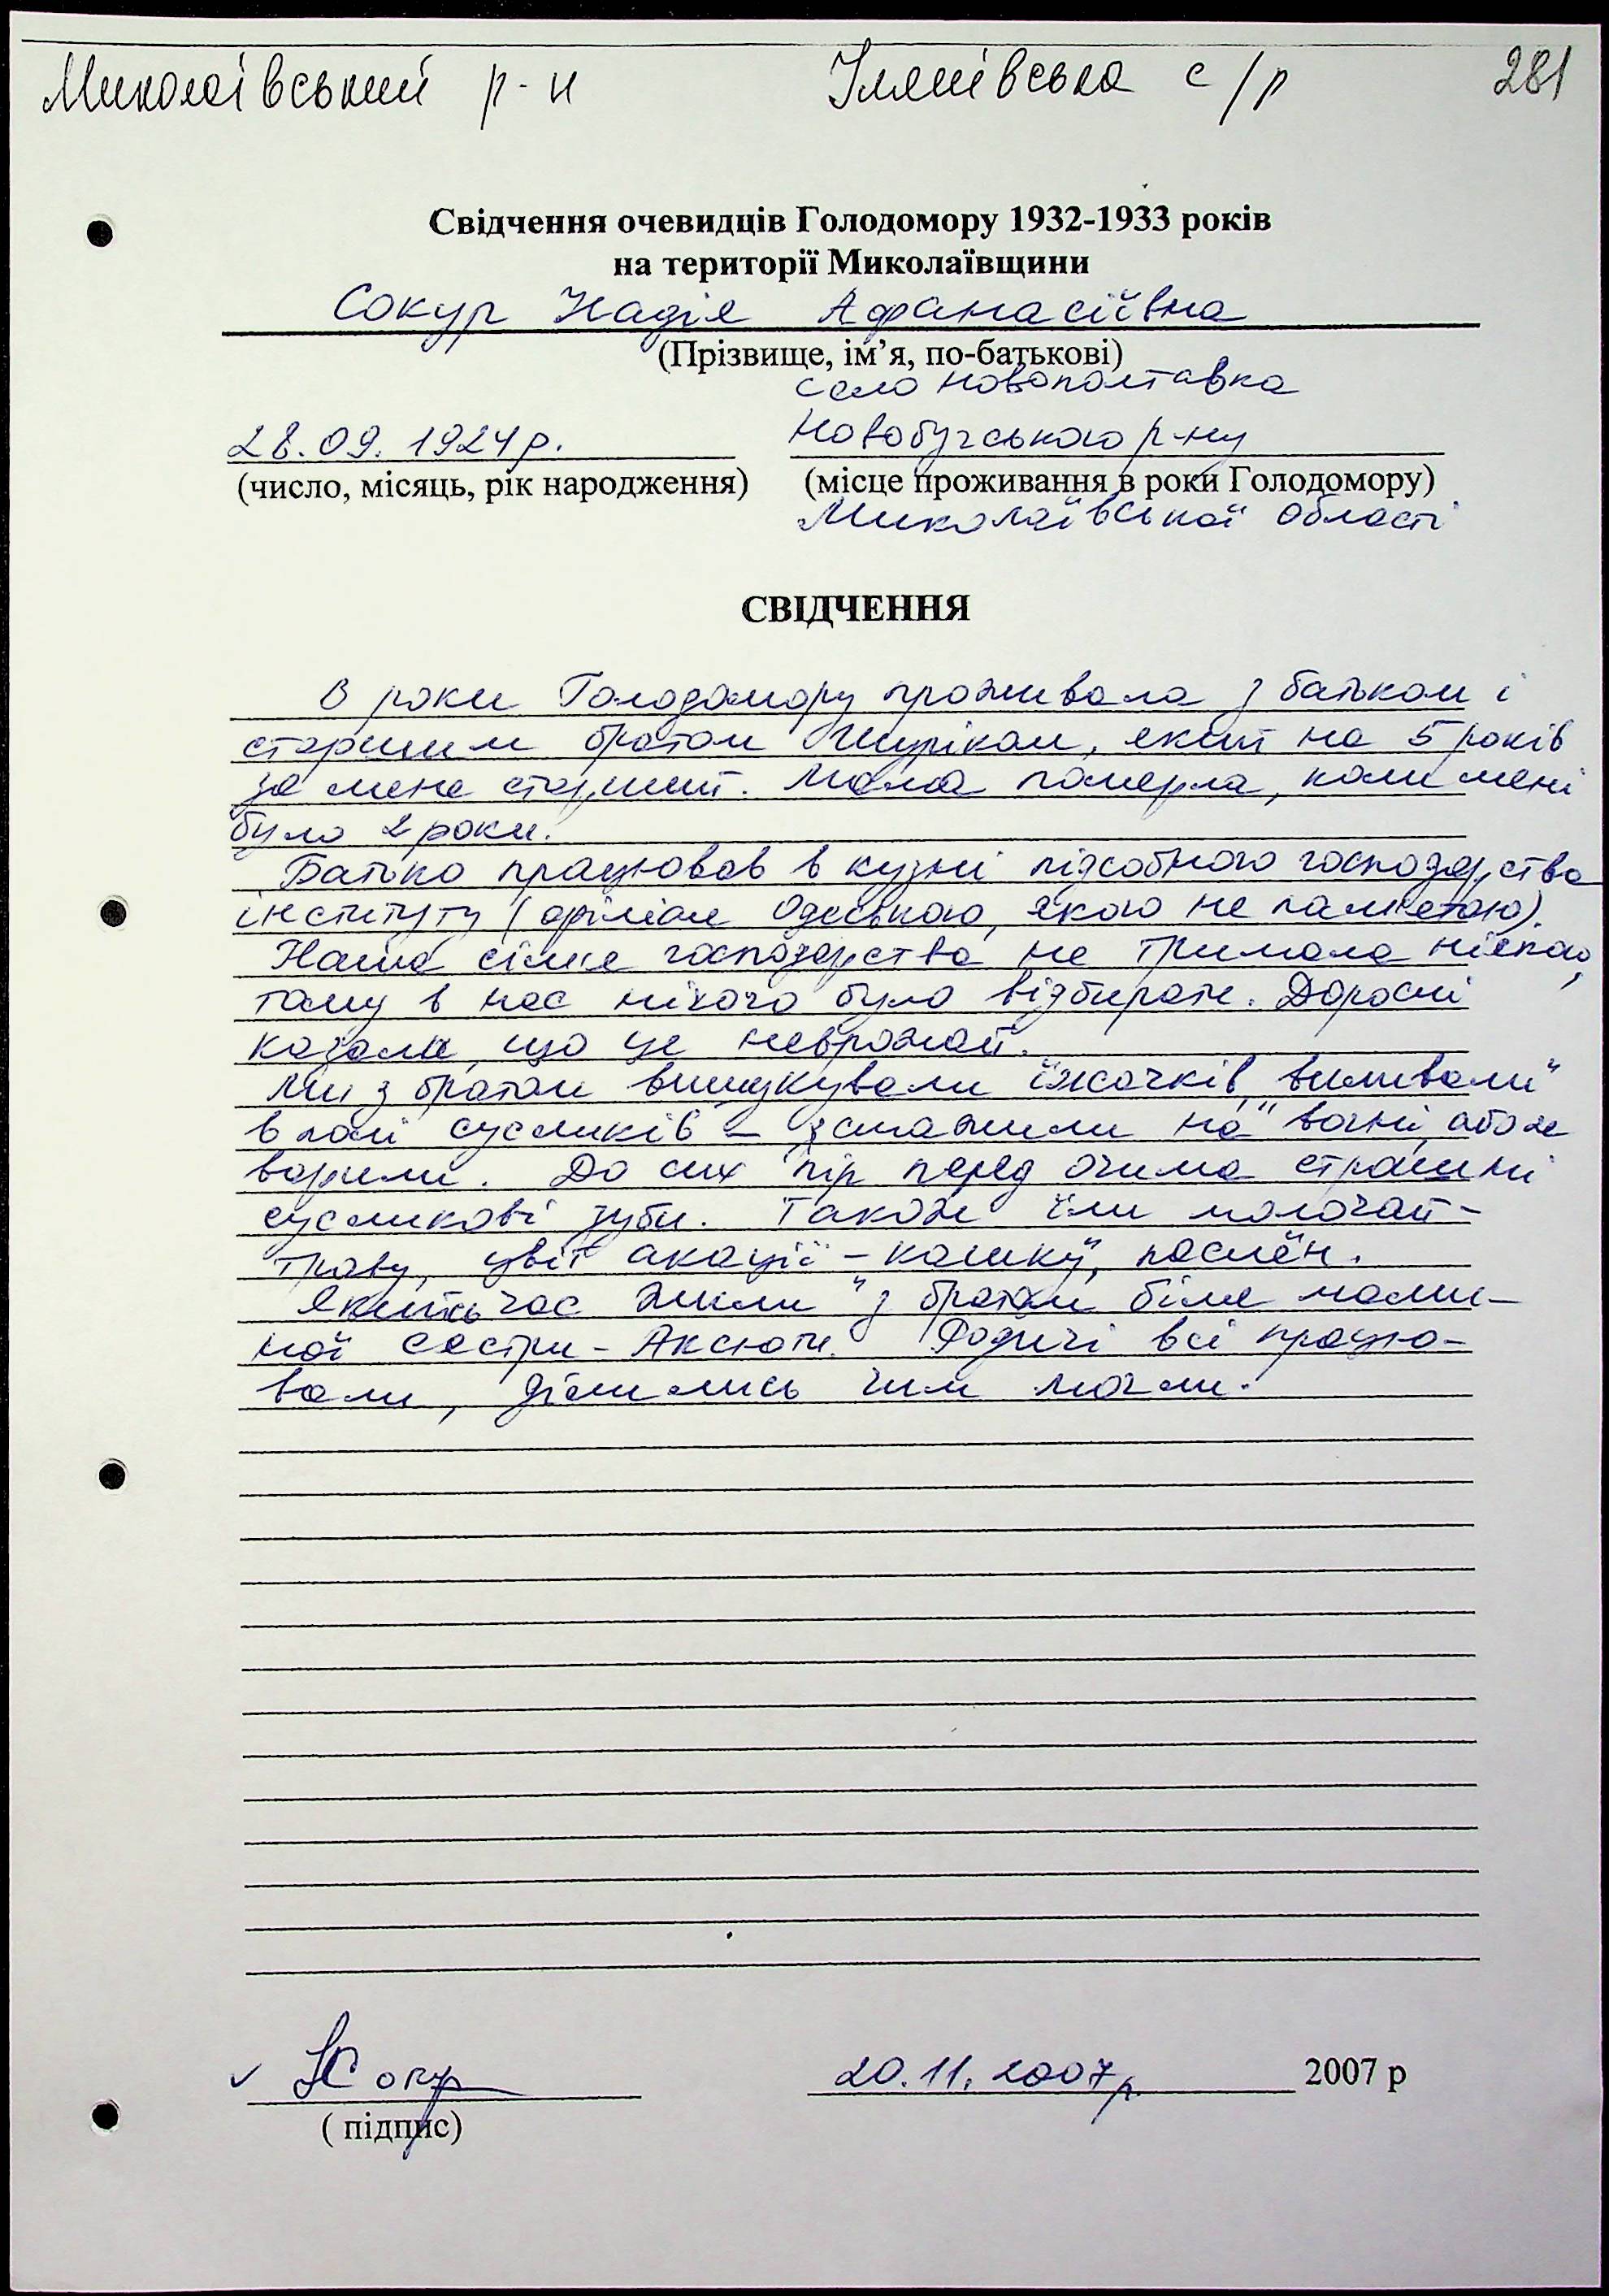 Миколаївський р-н Ілляшівська с/р 281
Свідчення очевидців Голодомору 1932-1933 років
на території Миколаївщини
Сокур Надія Афанасіївна
(Прізвище, ім’я, по-батькові)
село Новополтавка
28.09.1924р. Новобузького р-ну
(число, місяць, рік народження) (місце проживання в роки Голодомору)
Миколаївської області
СВІДЧЕННЯ
В роки Голодомору проживала з батьком і
старшим братом Шуріком, який на 5 років
за мене старший. Мама померла, коли мені
було 2 роки.
Батько працював в кузні підсобного господарства
інституту (філіал Одеського, якого не памʼятаю).
Наша сімʼя господарства не тримала ніякого,
тому в нас нічого було відбирати. Дорослі
казали, що це неврожай.
Ми з братом вишукували їжачків, „виливали"
в полі сусликів – смажили на вогні, або ж
варили. До сих пір перед очима страшні
сусликові зуби. Також їли молочай-
траву, цвіт акації – „кашку", паслён.
Якийсь час жили з братом біля мами-
ної сестри - Аксюти. Родичі всі працю-
вали, ділились чим могли.
НСокур 20.11.2007р. 2007 р
( підпис)